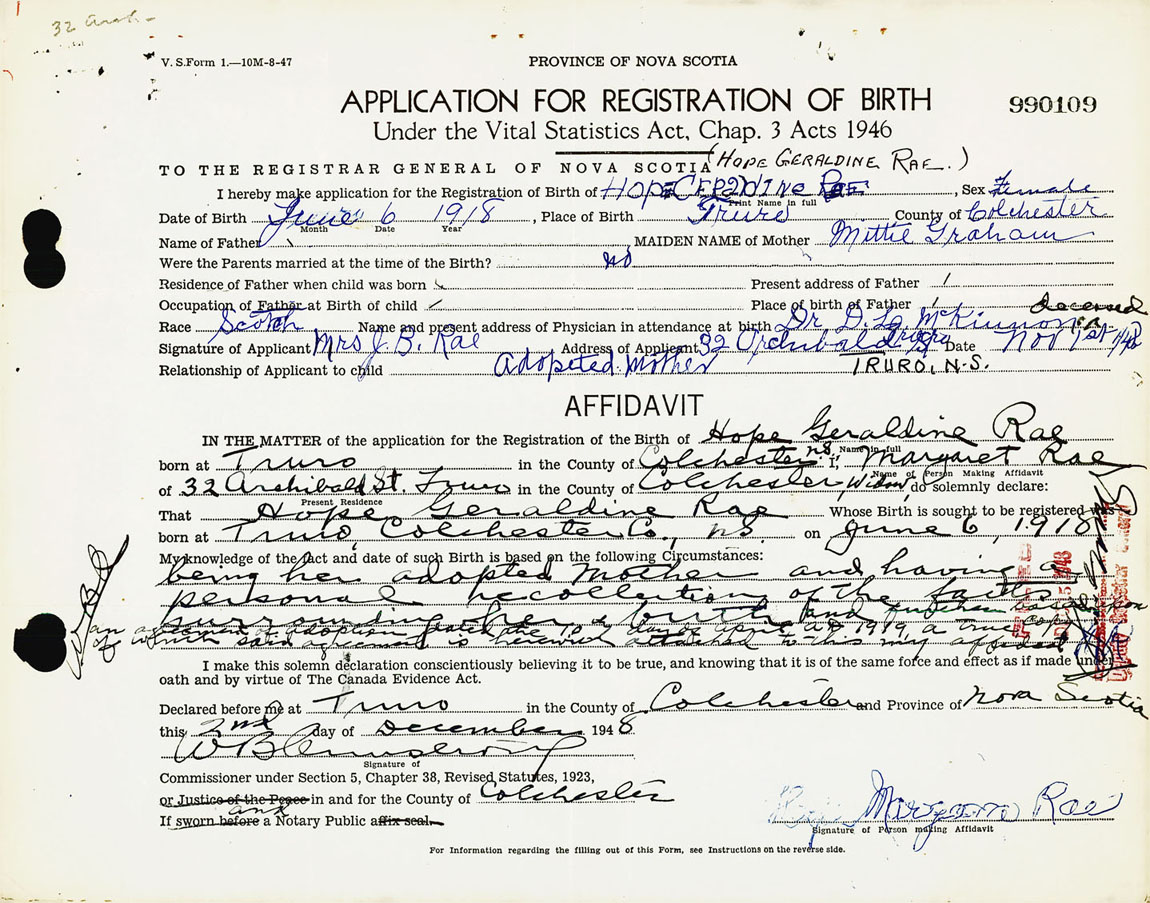 32 Arch
V. S. Form 1.—10M-8-47
PROVINCE OF NOVA SCOTIA
APPLICATION FOR REGISTRATION OF BIRTH
990109
Under the Vital Statistics Act, Chap. 3 Acts 1946
TO THE REGISTRAR GENERAL OF NOVA SCOTIA (HOPE GERALDINE RAE.)
I hereby make application for the Registration of Birth of HOPE GERALDINE RAE, Sex Female
Print Name in full
Date of Birth June 6 1918, Place of Birth Truro County of Colchester
Month Date Year
Name of Father MAIDEN NAME of Mother Mittie Graham
Were the Parents married at the time of the Birth? no
Residence of Father when child was born Present address of Father
Occupation of Father at Birth of child Place of birth of Father deceased
Race Scotch Name and present address of Physician in attendance at birth Dr D. McKinnon
Signature of Applicant Mrs J. B. Rae Address of Applicant 32 Archibald Date Nov 1st
Relationship of Applicant to child Adopted Mother TRURO, N.S.
AFFIDAVIT
IN THE MATTER of the application for the Registration of the Birth of Hope Geraldine Rae
Name in full
born at Truro in the County of Colchester N.S. I, Margaret Rae
Name of Person Making Affidavit
of 32 Archibald St. Truro in the County of Colchester, Widow, do solemnly declare:
Present Residence
That Hope Geraldine Rae Whose Birth is sought to be registered was
born at Truro, Colchester Co., N.S. on June 6, 1918
My knowledge of the fact and date of such Birth is based on the following Circumstances:
being her adopted Mother and having a
personal recollection of the facts
surrounding her birth and further based upon
an agreement of adoption dated the day of A.D. 1919, a true copy
of which said agreement is hereunto attached to this my affidavit
I make this solemn declaration conscientiously believing it to be true, and knowing that it is of the same force and effect as if made under
oath and by virtue of The Canada Evidence Act.
Declared before me at Truro in the County of Colchester and Province of Nova Scotia
this 2nd day of December 1948
W B Armstrong
Signature of
Commissioner under Section 5, Chapter 38, Revised Statutes, 1923,
or Justice of the Peace in and for the County of Colchester
and
If sworn before a Notary Public affix seal.
Rae
Signature of Person making Affidavit
For Information regarding the filling out of this Form, see Instructions on the reverse side.